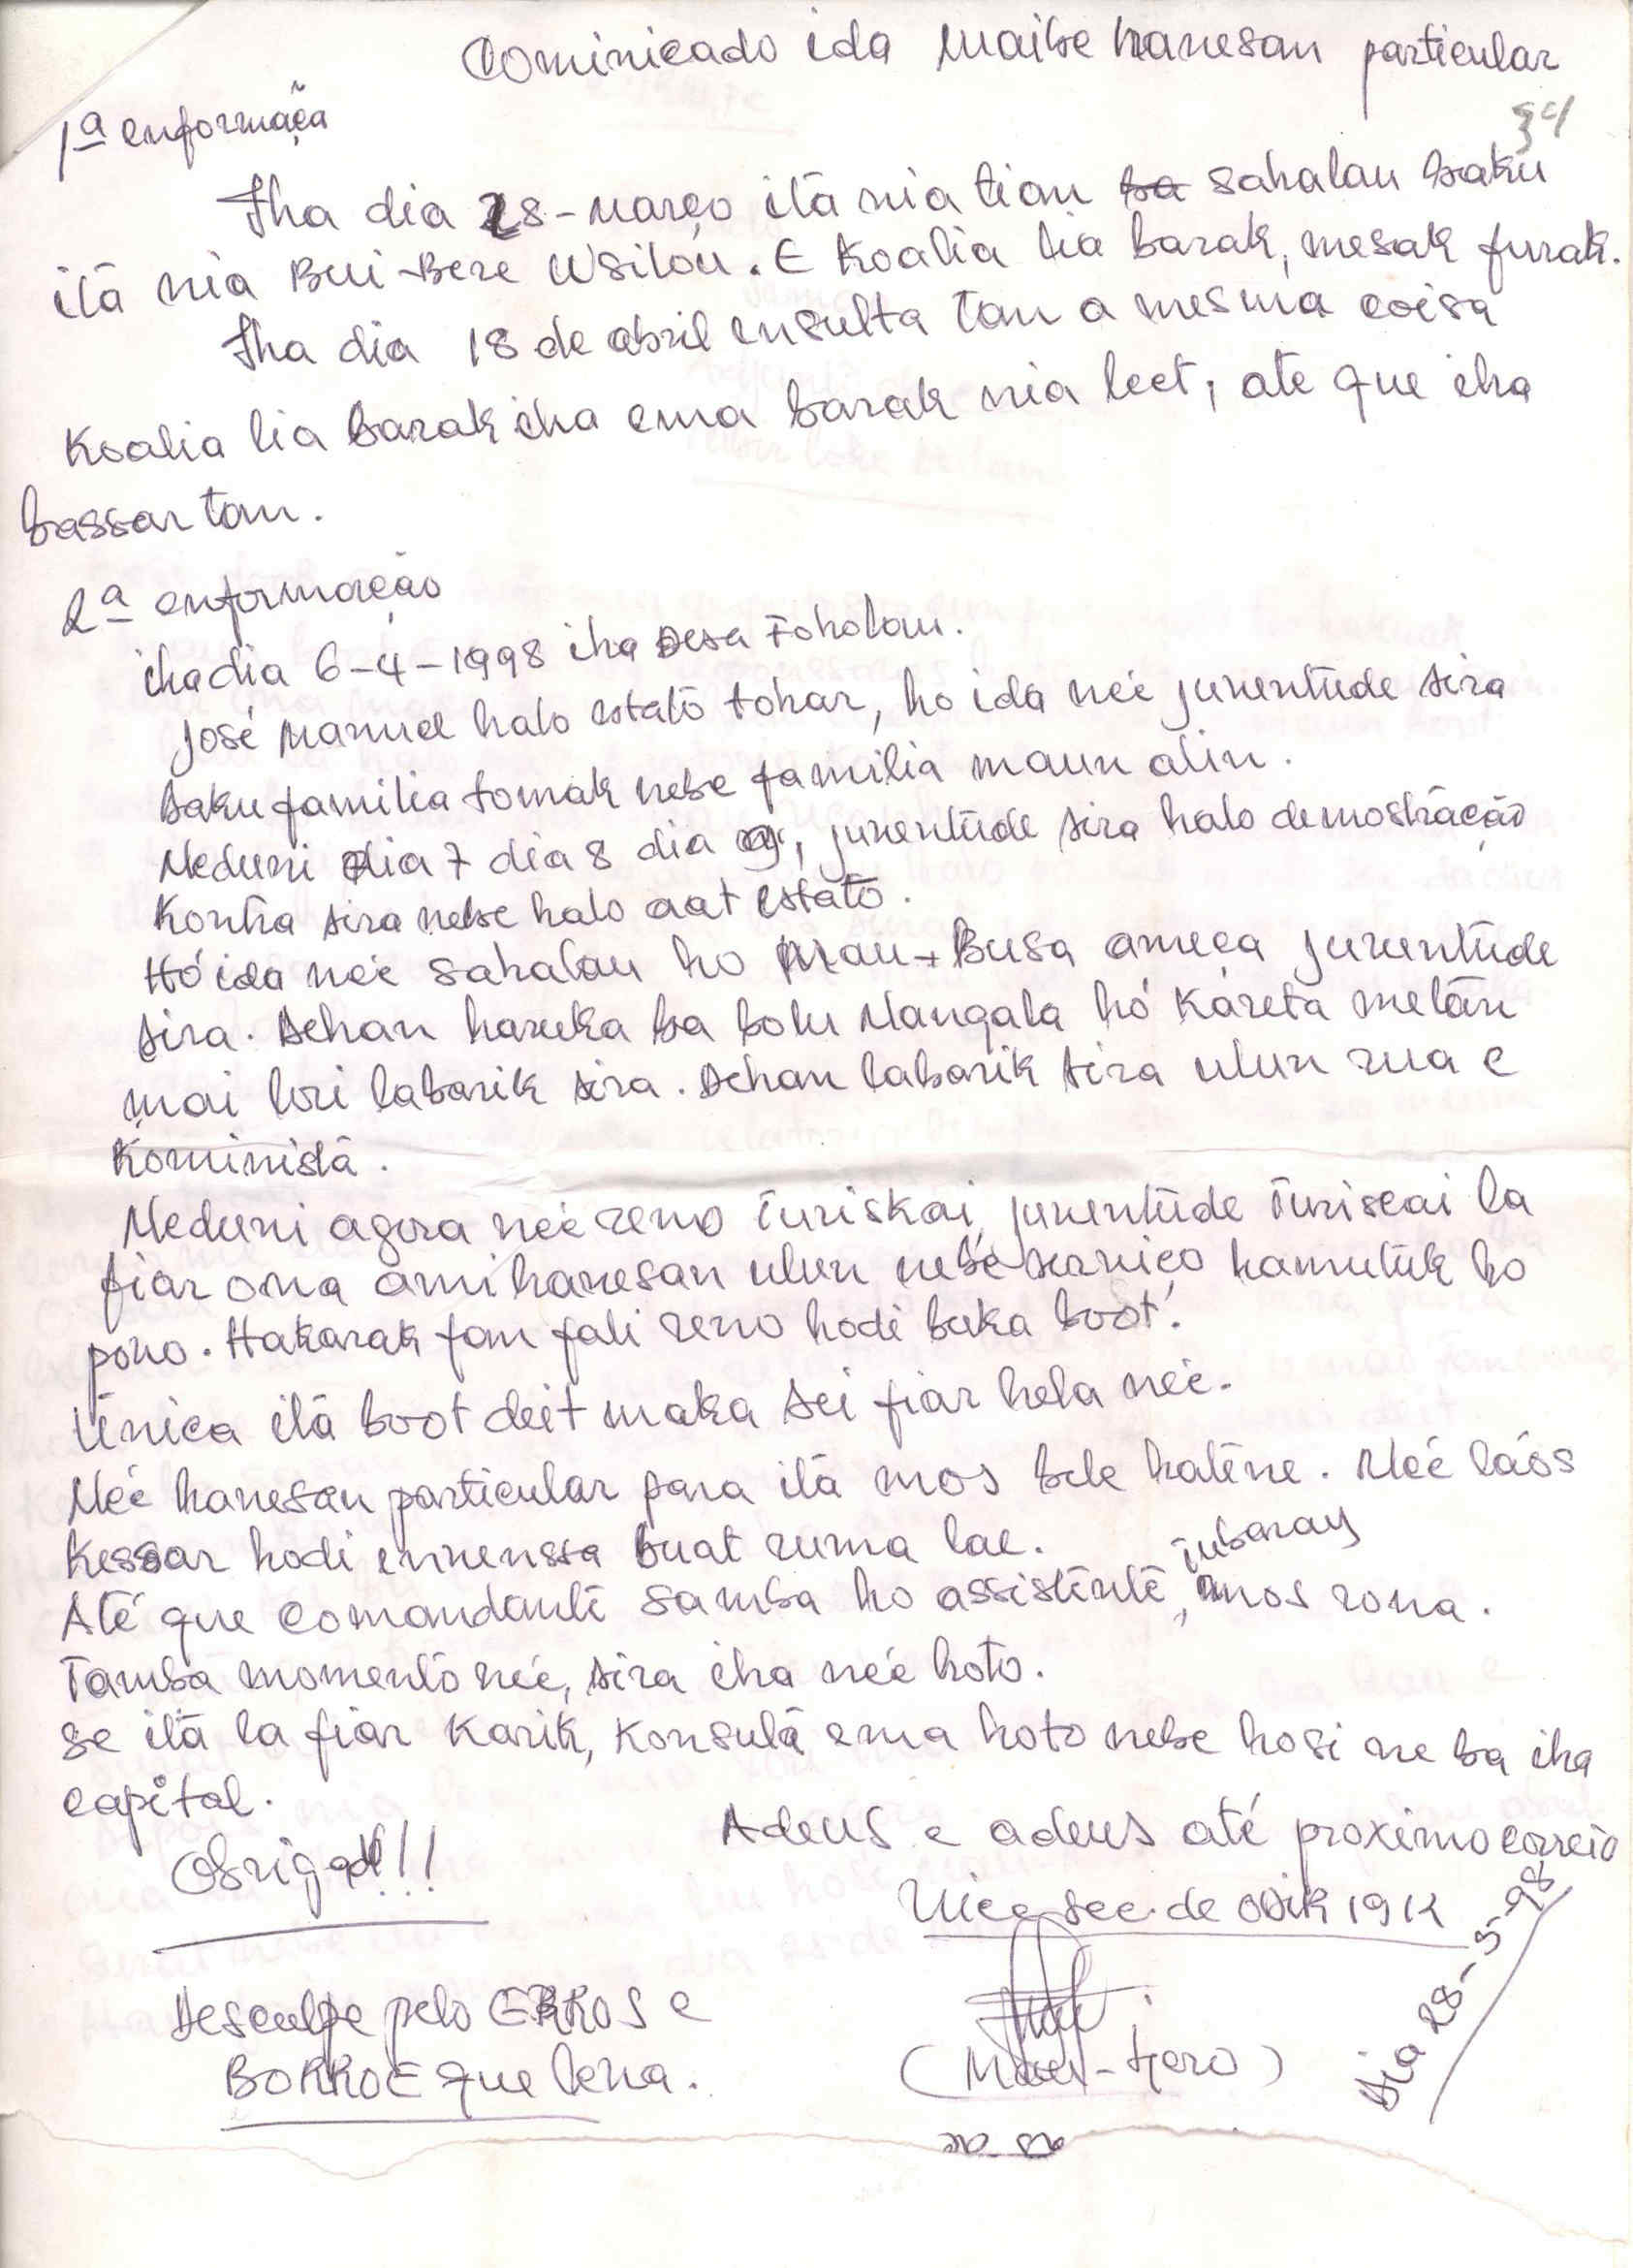 Cominicado ida maibe hanesan particular
34
1ª enformaçea
Iha dia 28-março itā nia tian ba sahalau baku
itā nia Bui-Bere W'silou. E koalia lia barak, mesak furak.
Iha dia 18 de abril ensulta tan a mesma coisa
koalia lia barak iha ema barak nia leet, ate que iha
bassar tan.
2ª enformação
iha dia 6-4-1998 iha Desa Foholau.
José Manuel halo estatō tohar, ho ida neé juventūde sira
baku familia tomak nebe familia maun alin.
Neduni dia 7 dia 8 dia 9, juventūde sira halo demostração
Kontra sira nebe halo aat estatō.
Hó ida neé sahalau ho Mau-Busa ameça juventūde
sira. Dehan haruka ba bolu Nangala hó káreta metān
mai lori labarik sira. Dehan labarik sira ulun rua e
Kominista.
Neduni agora neé reno Turiskai, juventūde Turiscai la
fiar ona ami hanesan ulun nebé serviço hamutūk ho
povo. Hakarak fan fali reno hodi buka boot.
Ūnica itā boot deit maka sei fiar hela neé.
Neé hanesan particular para itā mos bele hatēne. Neé láos
kessar hodi envenssa buat ruma lae.
Até que comandantē samba ho assistēntē, tubaray mos rona.
Tamba momentō neé, sira iha neé hoto.
Se itā la fiar karik, konsulā ema hoto nebe hosi ne ba iha
capital.
Obrigad!!!
Adeus e adeus até proximo correio
Vice sec. de Odik 1912
Desculpe pelo ERROS e
BORROE que lena.
Dia 28-5-98